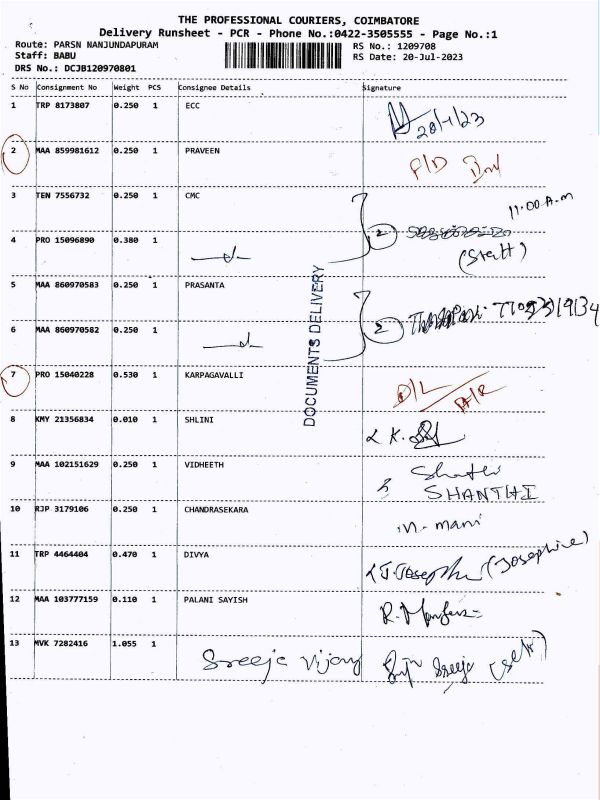 THE PROFESSIONAL COURIERS, COIMBATORE
Delivery Runsheet - PCR - Phone No.:0422-3505555 - Page No.:1
Route: PARSN NANJUNDAPURAM RS No.: 1209708
Staff: BABU RS Date: 20-Jul-2023
DRS No.: DCJB120970801
S No Consignment No Weight PCS Consignee Details Signature
1 TRP 8173807 0.250 1 ECC
2 MAA 859981612 0.250 1 PRAVEEN P/D
3 TEN 7556732 0.250 1 CMC 11.00 A.m
4 PRO 15096890 0.380 1 2 (Staff)
5 MAA 860970583 0.250 1 PRASANTA
6 MAA 860970582 0.250 1 2
DOCUMENTS DELIVERY
7 PRO 15040228 0.530 1 KARPAGAVALLI D/L
8 KMY 21356834 0.010 1 SHLINI
9 MAA 102151629 0.250 1 VIDHEETH SHANTHI
10 RJP 3179106 0.250 1 CHANDRASEKARA n. mani
11 TRP 4464404 0.470 1 DIVYA J. Josephine (Josephine)
12 MAA 103777159 0.110 1 PALANI SAYISH
13 MVK 7282416 1.055 1 Sreeja Vijay Sreeja (self)